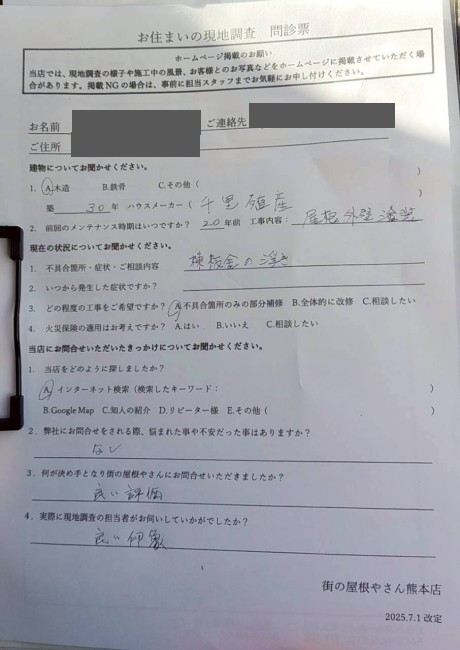 お住まいの現地調査 問診票
ホームページ掲載のお願い
当店では、現地調査の様子や施工中の風景、お客様とのお写真などをホームページに掲載させていただく場
合があります。掲載NGの場合は、事前に担当スタッフまでお気軽にお申し付けください。
お名前 ご連絡先
ご住所
建物についてお聞かせください。
1. A.木造 B.鉄骨 C.その他 ( )
築 30 年 ハウスメーカー ( 千里殖産 )
2. 前回のメンテナンス時期はいつですか? 20 年前 工事内容: 屋根外壁塗装
現在の状況についてお聞かせください。
1. 不具合箇所・症状・ご相談内容 棟板金の浮き
2. いつから発生した症状ですか?
3. どの程度の工事をご希望ですか? A.不具合箇所のみの部分補修 B.全体的に改修 C.相談したい
4. 火災保険の適用はお考えですか? A.はい B.いいえ C.相談したい
当店にお問合せいただいたきっかけについてお聞かせください。
1. 当店をどのように探しましたか?
A.インターネット検索 (検索したキーワード: )
B.Google Map C.知人の紹介 D.リピーター様 E.その他 ( )
2. 弊社にお問合せをされる際、悩まれた事や不安だった事はありますか?
なし
3. 何が決め手となり街の屋根やさんにお問合せいただきましたか?
良い評価
4. 実際に現地調査の担当者がお伺いしていかがでしたか?
良い印象
街の屋根やさん熊本店
2025.7.1 改定